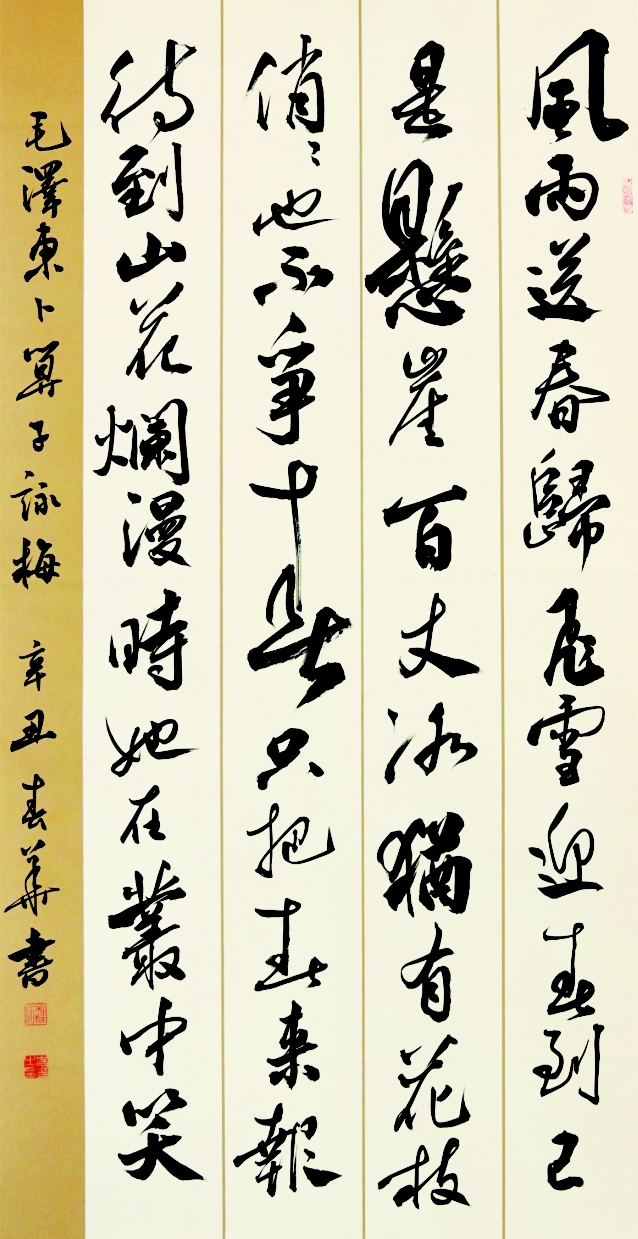 風雨送春歸飛雪迎春到已
是懸崖百丈冰猶有花枝
俏〻也不爭春只把春来報
待到山花爛漫時她在叢中笑
毛澤東卜算子詠梅 辛丑春華書